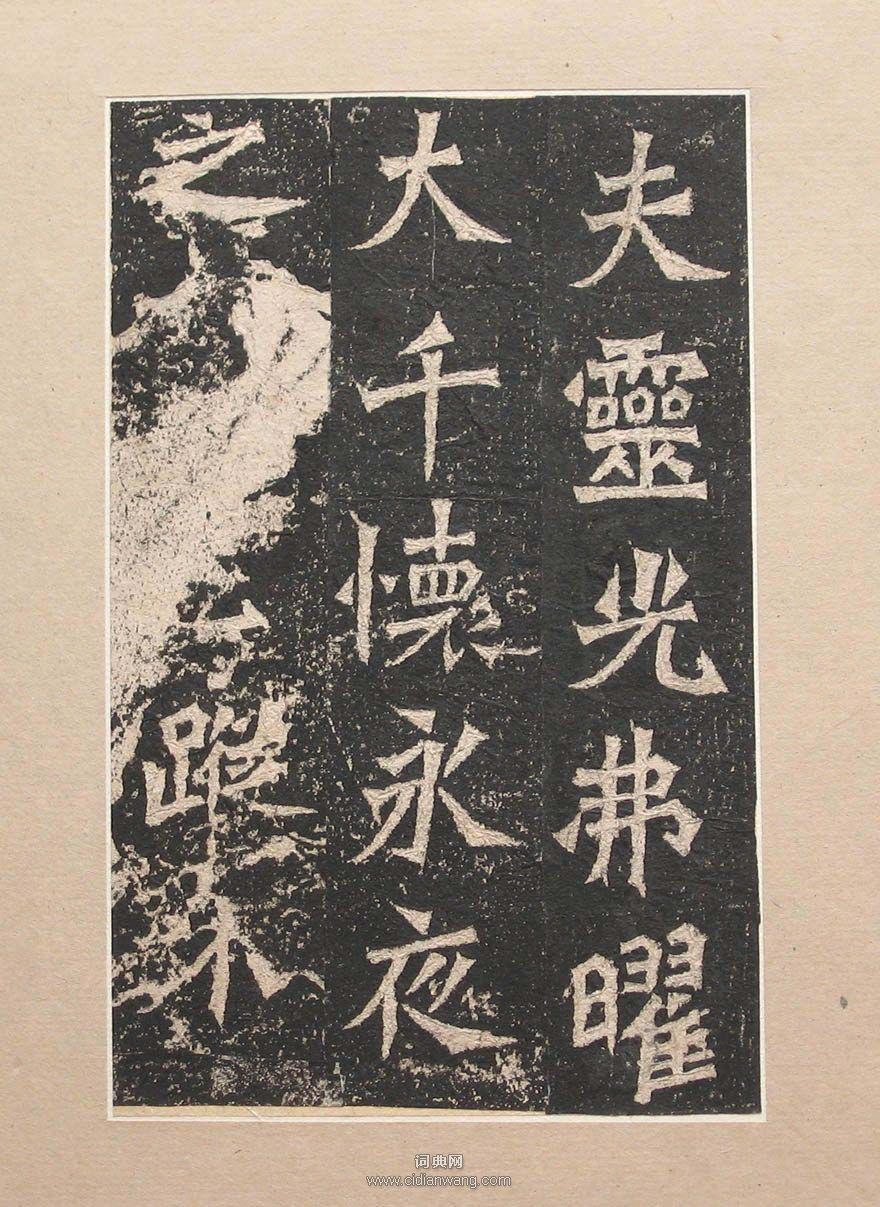 夫靈光弗曜
大千懷永夜
之蹤不
词典网
www.cidianwang.com